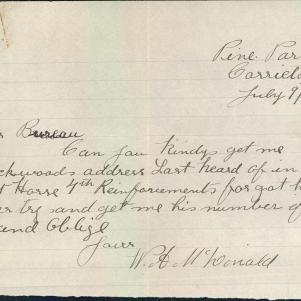 Pine Par
Carrieto
July 9/
r Bureau
Can you kindly get me
ckwoods address Last heard of in
t Horse 4th Reinforcements for got h
er try and get me his number of
and Oblige
Yours
W. A. McDonald